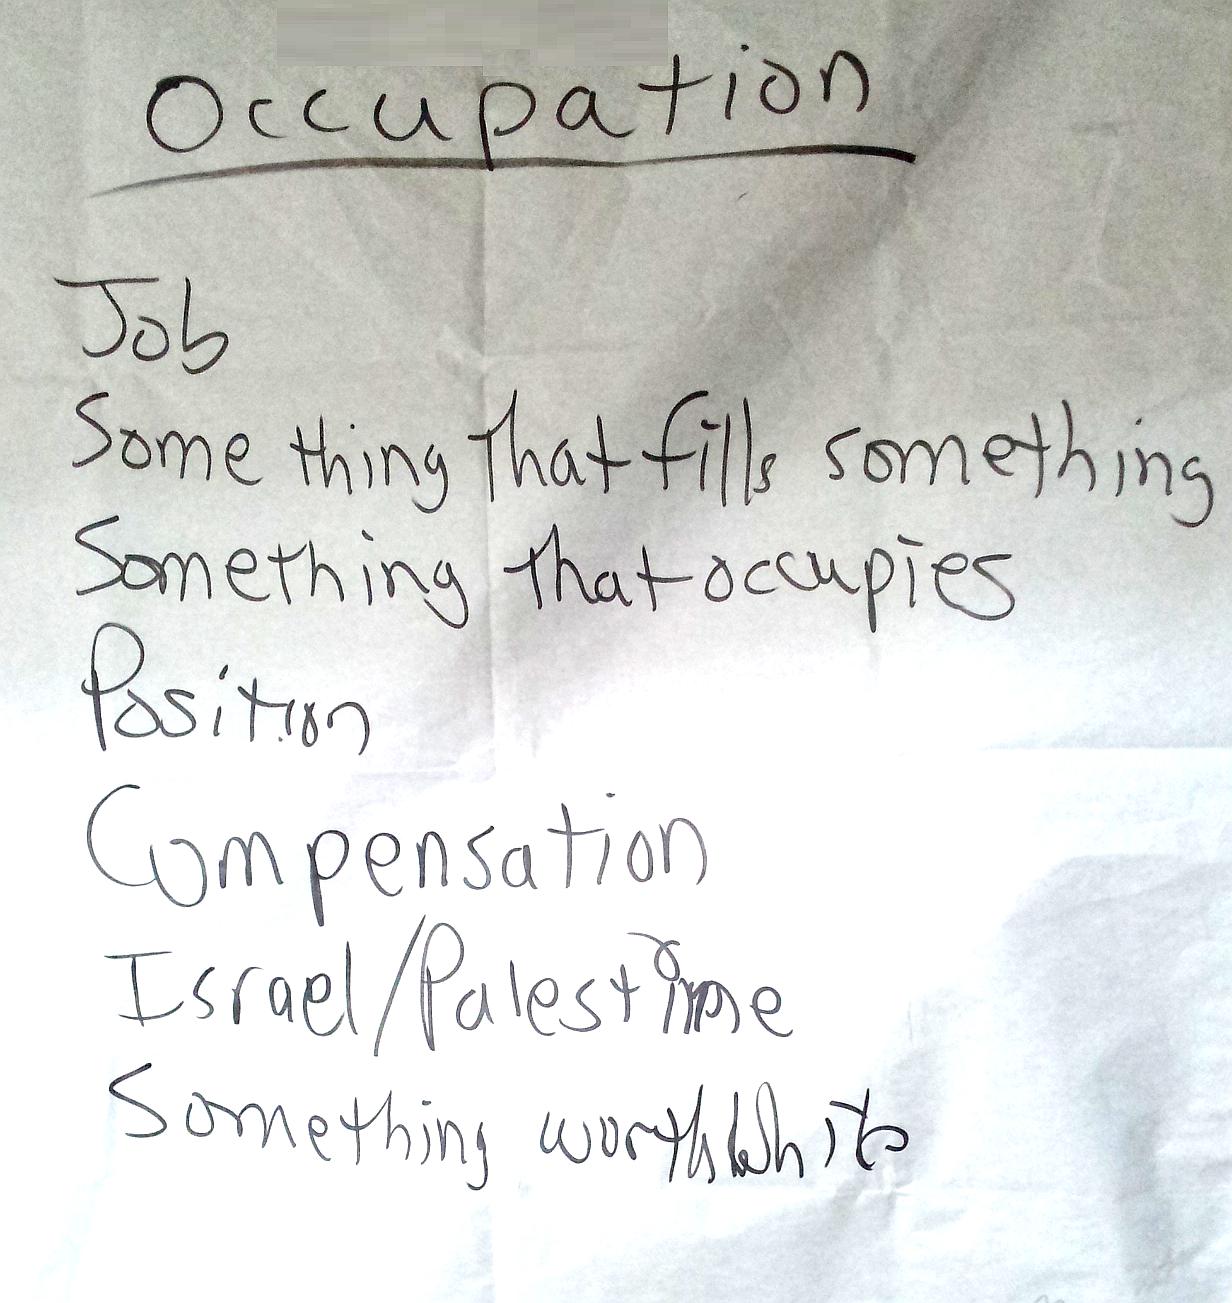 Occupation
Job
Something that fills something
Something that occupies
Position
Compensation
Israel/Palestine
Something worthwhile